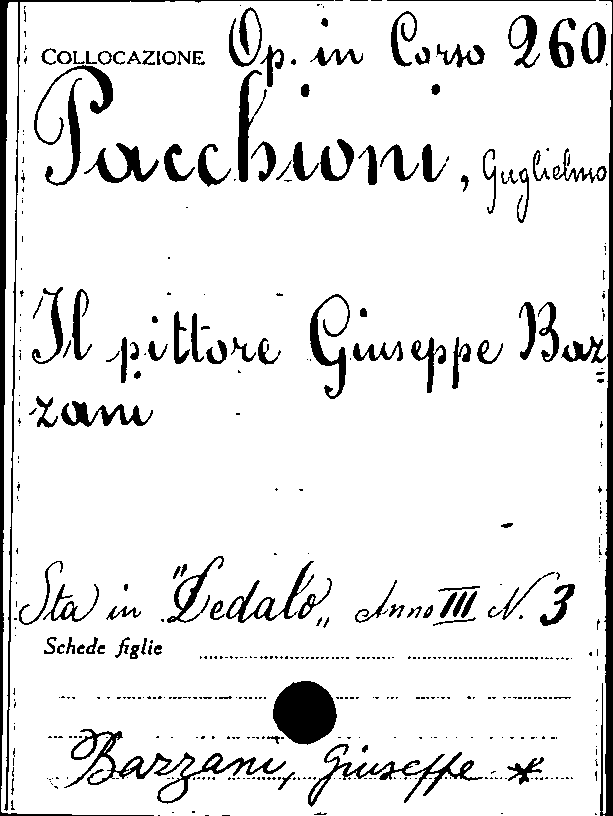 COLLOCAZIONE Op. in Corso 260
Pacchioni, Guglielmo
Il pittore Giuseppe Baz=
zani
Sta in "Dedalo„ Anno III N. 3
Schede figlie
Bazzani, Giuseppe *